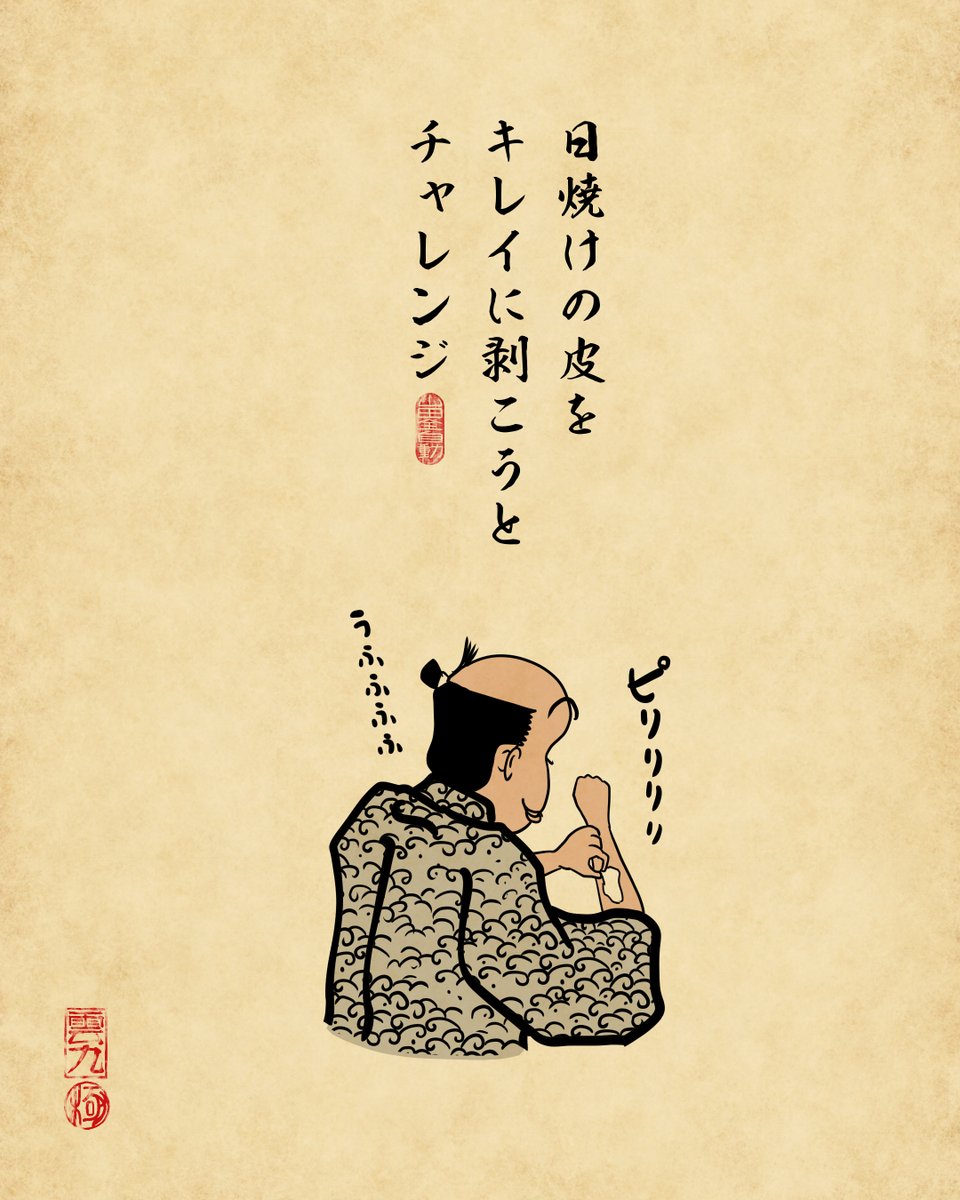 日焼けの皮を
キレイに剥こうと
チャレンジ
うふふふふ
ピリリリリ